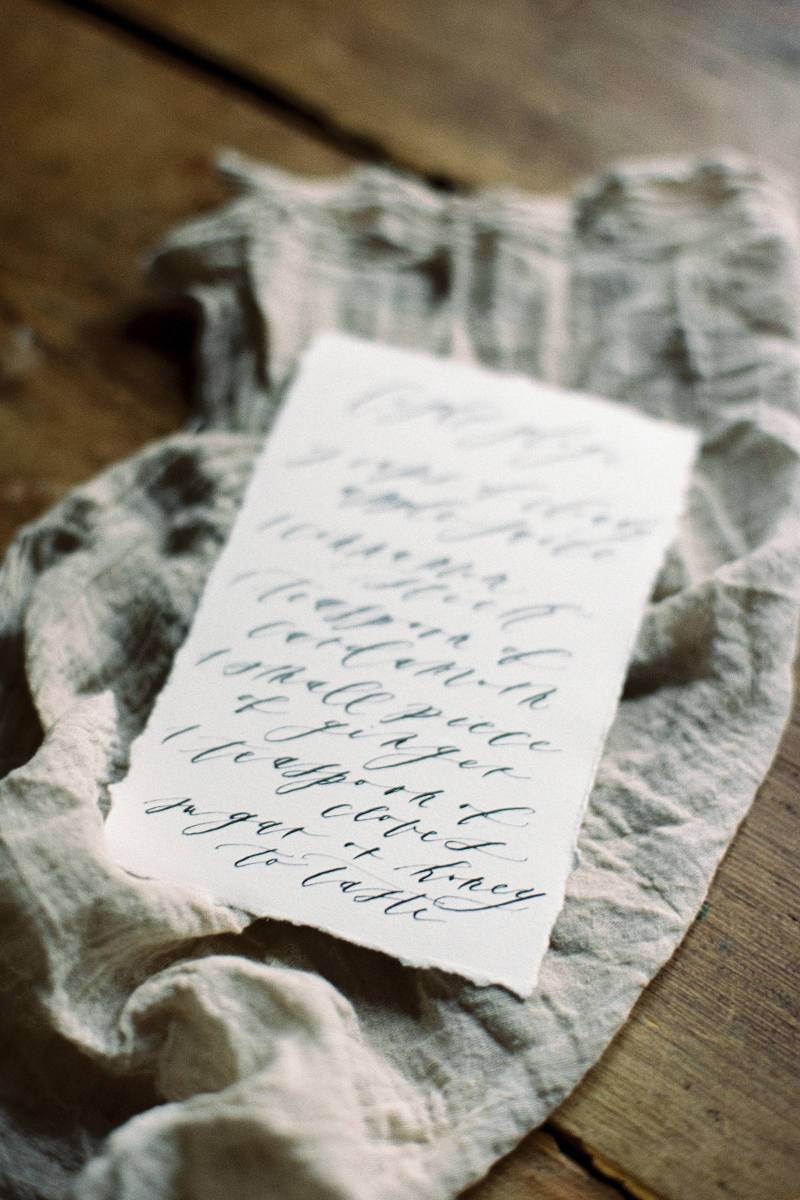 cups of cloudy
apple juice
1 cinnamon
stick
1 teaspoon of
cardamom
1 small piece
of ginger
1 teaspoon of
cloves
sugar or honey
to taste